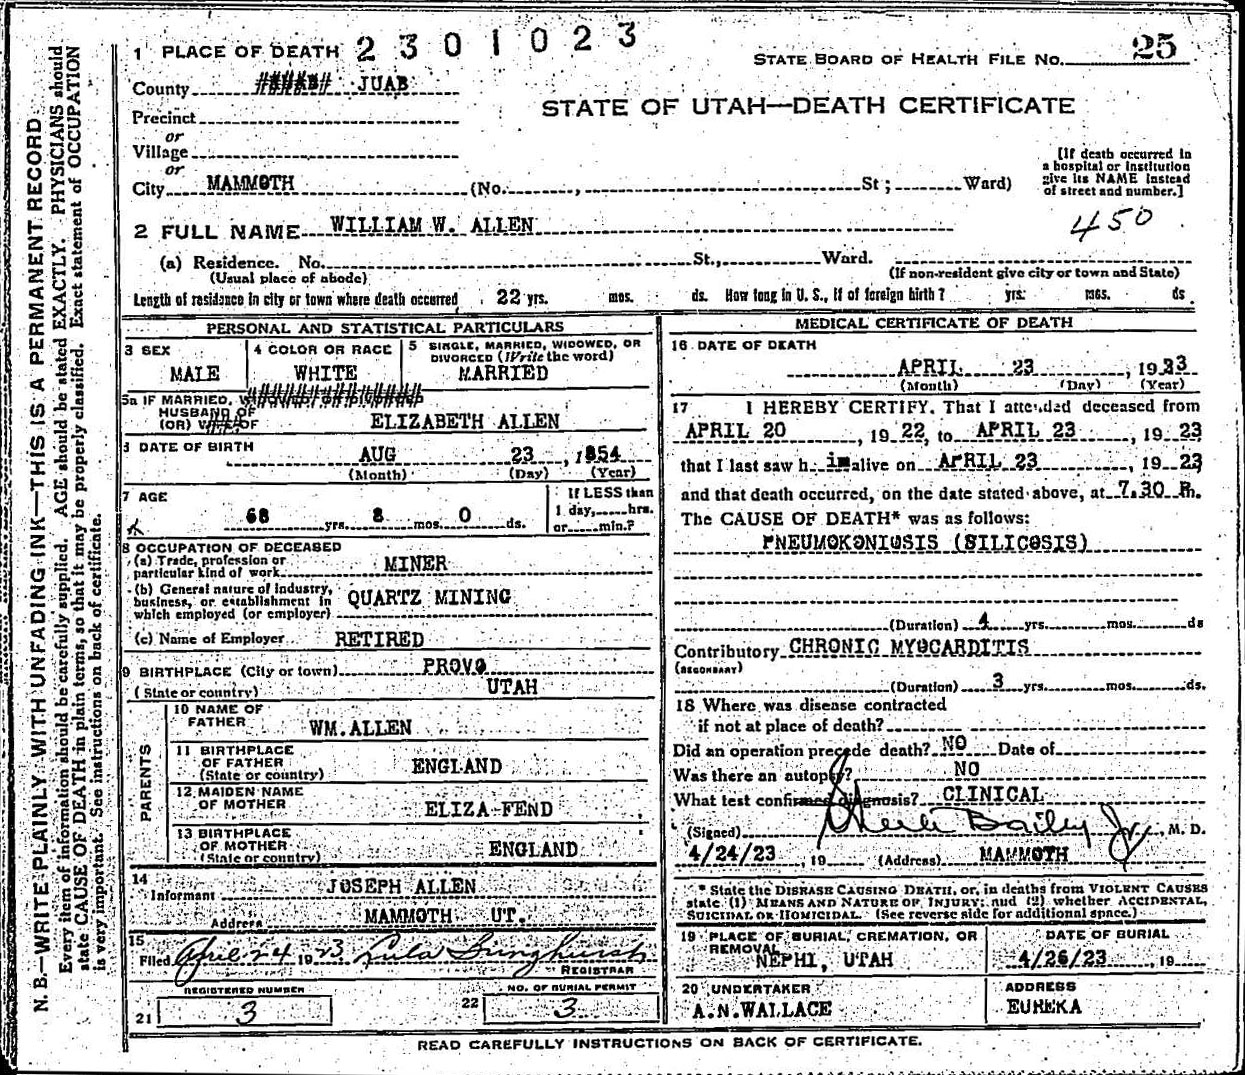 2301023
1 PLACE OF DEATH
STATE BOARD OF HEALTH FILE No. 25
County JUAB
STATE OF UTAH—DEATH CERTIFICATE
Precinct
or
Village
or
City MAMMOTH (No. , St ; Ward)
[If death occurred in
a hospital or institution
give its NAME instead
of street and number.]
450
2 FULL NAME WILLIAM W. ALLEN
(a) Residence. No. St., Ward.
(Usual place of abode) (If non-resident give city or town and State)
Length of residence in city or town where death occurred 22 yrs. mos. ds. How long in U. S., if of foreign birth? yrs. mos. ds
PERSONAL AND STATISTICAL PARTICULARS
3 SEX
MALE
4 COLOR OR RACE
WHITE
5 SINGLE, MARRIED, WIDOWED, OR
DIVORCED (Write the word)
MARRIED
5a IF MARRIED,
HUSBAND OF
(OR) OF ELIZABETH ALLEN
DATE OF BIRTH
AUG 23, 1854
(Month) (Day) (Year)
7 AGE
68 yrs. 8 mos. 0 ds.
If LESS than
1 day, hrs.
or min.?
8 OCCUPATION OF DECEASED
(a) Trade, profession or
particular kind of work MINER
(b) General nature of industry,
business, or establishment in
which employed (or employer) QUARTZ MINING
(c) Name of Employer RETIRED
9 BIRTHPLACE (City or town) PROVO
(State or country) UTAH
PARENTS
10 NAME OF
FATHER WM. ALLEN
11 BIRTHPLACE
OF FATHER
(State or country) ENGLAND
12 MAIDEN NAME
OF MOTHER ELIZA FEND
13 BIRTHPLACE
OF MOTHER
(State or country) ENGLAND
14
Informant JOSEPH ALLEN
Address MAMMOTH UT.
15
Filed April 24 1923 Lula
REGISTRAR
REGISTERED NUMBER
21 3
NO. OF BURIAL PERMIT
22 3
MEDICAL CERTIFICATE OF DEATH
16 DATE OF DEATH
APRIL 23, 1923
(Month) (Day) (Year)
17 I HEREBY CERTIFY. That I attended deceased from
APRIL 20, 19 22, to APRIL 23, 19 23
that I last saw h im alive on APRIL 23, 19 23
and that death occurred, on the date stated above, at 7.30 P.m.
The CAUSE OF DEATH* was as follows:
PNEUMOKONIOSIS (SILICOSIS)
(Duration) 4 yrs. mos. ds
Contributory CHRONIC MYOCARDITIS
(SECONDARY)
(Duration) 3 yrs. mos. ds.
18 Where was disease contracted
if not at place of death?
Did an operation precede death? NO Date of
Was there an autopsy? NO
What test confirmed diagnosis? CLINICAL
(Signed) Steele Bailey Jr., M. D.
4/24/23, 19 (Address) MAMMOTH
* State the DISEASE CAUSING DEATH, or, in deaths from VIOLENT CAUSES
state (1) MEANS AND NATURE OF INJURY; and (2) whether ACCIDENTAL,
SUICIDAL OR HOMICIDAL. (See reverse side for additional space.)
19 PLACE OF BURIAL, CREMATION, OR
REMOVAL
NEPHI, UTAH
DATE OF BURIAL
4/26/23, 19
20 UNDERTAKER
A.N.WALLACE
ADDRESS
EUREKA
READ CAREFULLY INSTRUCTIONS ON BACK OF CERTIFICATE.
N. B.—WRITE PLAINLY WITH UNFADING INK—THIS IS A PERMANENT RECORD
Every item of information should be carefully supplied. AGE should be stated EXACTLY. PHYSICIANS should
state CAUSE OF DEATH in plain terms, so that it may be properly classified. Exact statement of OCCUPATION
is very important. See instructions on back of certificate.